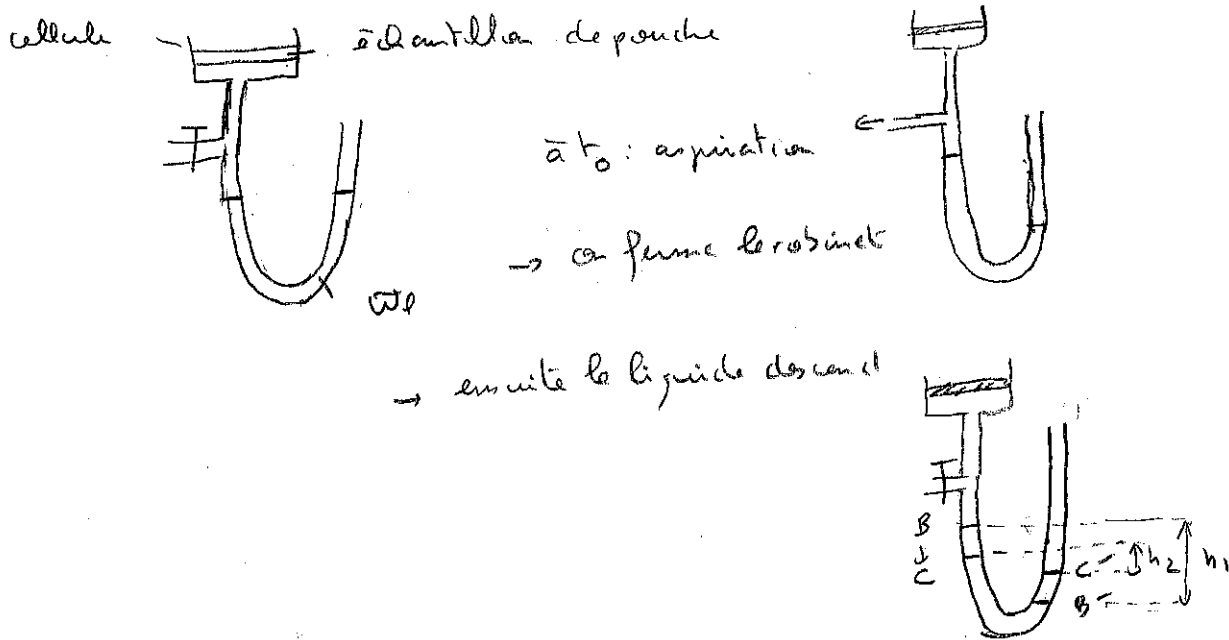 cellule échantillon de poudre
à t0 : aspiration
→ on ferme le robinet
→ ensuite le liquide descend
B
C
C'
B'
h2
h1